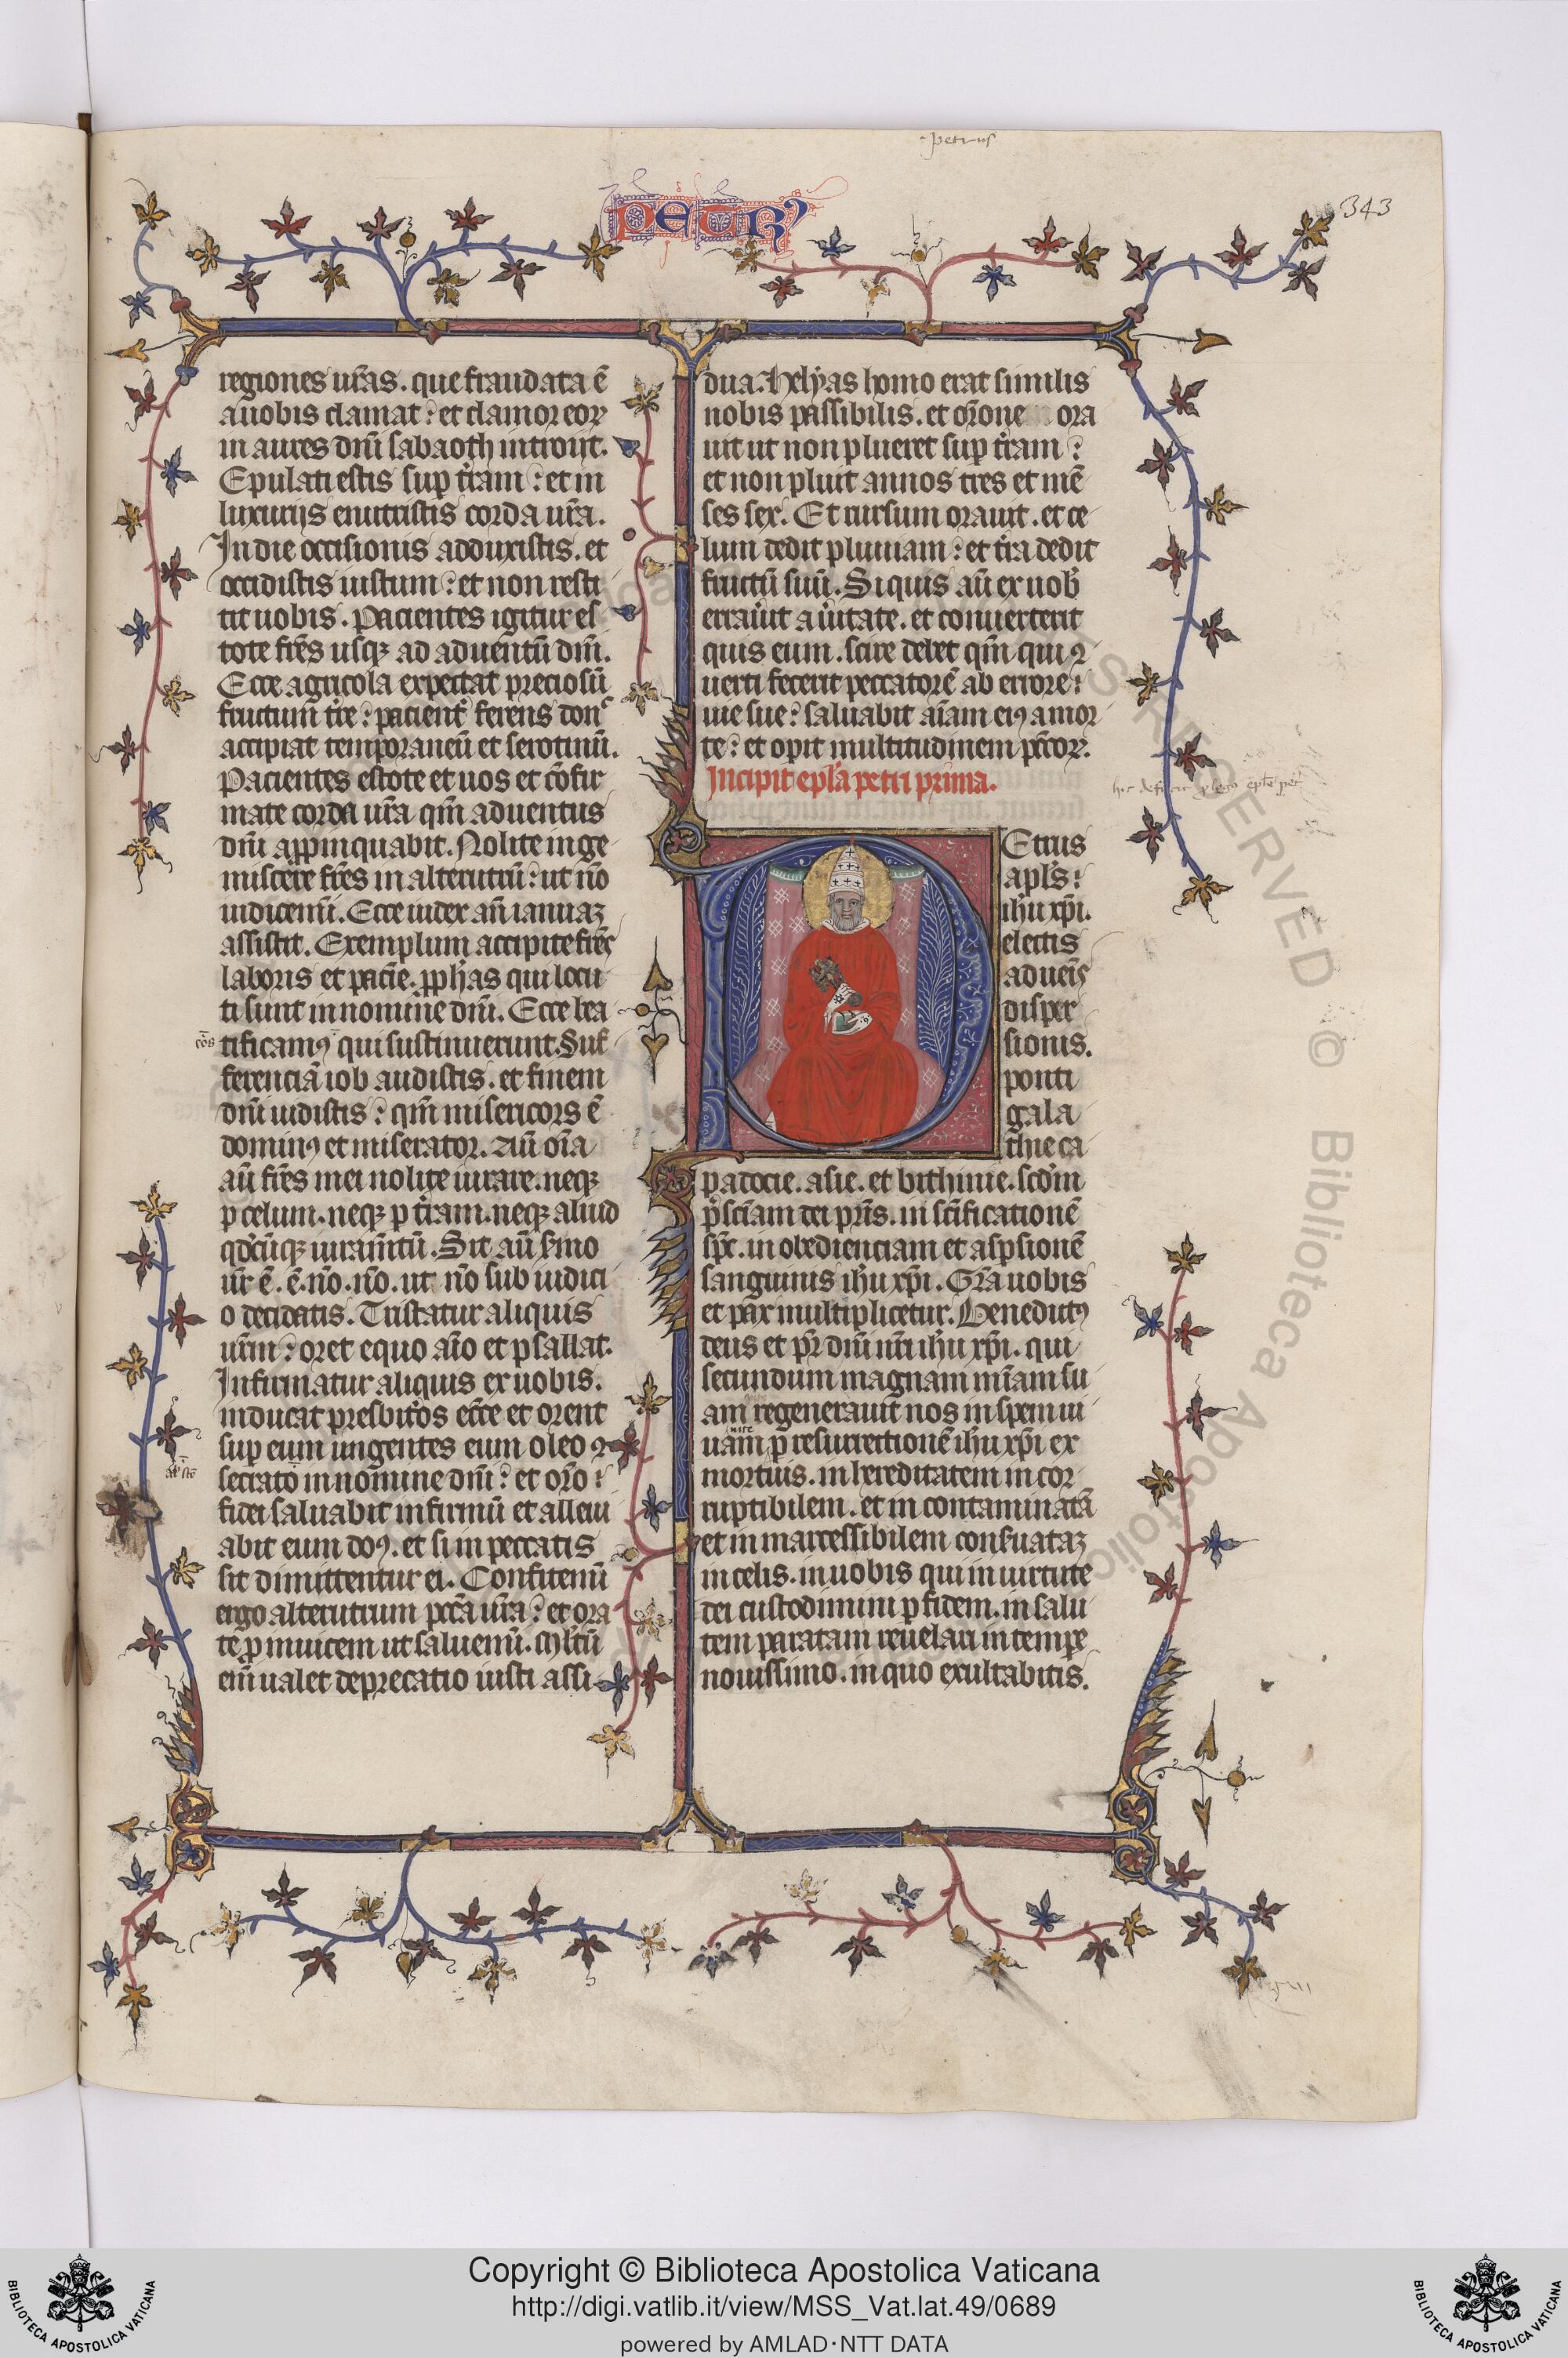 petrus
PETRꝰ
343
regiones ur̃as. que fraudata ẽ
a uobis clamat: et clamor eoꝝ
in aures dñi sabaoth introijt.
Epulati estis suꝑ t̃ram: et in
luxurijs enutristis corda ur̃a.
In die occisionis adduxistis. et
occidistis iustum: et non resti
tit uobis. Pacientes igitur es
tote fr̃es usqꝫ ad aduentũ dñi.
Ecce agricola expectat preciosũ
fructum t̃re: pacient̃ ferens donᶜ
accipiat temporaneũ et serotinũ.
Pacientes estote et uos et cõfir
mate corda ur̃a qm̃ aduentus
dñi aꝓpinquabit. Nolite inge
miscere fr̃es in alterutrũ: ut nõ
iudicemĩ. Ecce iudex añ ianuaꝫ
assistit. Exemplum accipite fr̃es
laboris et paciẽ. ꝓph̃as qui locu
ti sunt in nomine dñi. Ecce bea
tificamꝰ qui sustinuerunt. Suf
ferenciã iob audistis. et finem
dñi uidistis: qm̃ misericors ẽ
dominꝰ et miserator. An̄ om̃a
aũ fr̃es mei nolite iurare. neqꝫ
ꝑ celum. neqꝫ ꝑ t̃ram. neqꝫ aliud
qd̃cũqꝫ iuram̃tũ. Sit aũ s̃mo
ur̃ ẽ. ẽ. nõ. nõ. ut nõ sub iudici
o decidatis. Tristatur aliquis
ur̃m: oret equo aĩo et psallat.
Infirmatur aliquis ex uobis.
inducat presbit̃os ecc̃e et orent
suꝑ eum ungentes eum oleo ꝯ
secrato in nomine dñi: et or̃o:
fidei saluabit infirmũ et alleui
abit eum dñs. et si in peccatis
sit dimittentur ei. Confitemĩ
ergo alterutrum pcc̃a ur̃a: et ora
te ꝓ inuicem ut saluemĩ. Mult̃ũ
em̃ ualet deprecatio iusti assi
dua. Helyas homo erat similis
nobis passibilis. et or̃one ora
uit ut non plueret suꝑ t̃ram:
et non pluit annos tres et mẽ
ses sex. Et rursum orauit. et ce
lum dedit pluuiam: et t̃ra dedit
fructũ suũ. Si quis aũ ex uob̃
errau̾it a u̾itate. et conuerterit
quis eum. scire debet qm̃ qui ꝯ
uerti fecerit peccatorẽ ab errore:
uie sue: saluabit aĩam eiꝰ a mor
te: et opit multitudinem pcc̃oꝝ.
Incipit epl̃a petri prima.
Etrus
apl̃s:
ih̃u xp̃i.
electis
aduẽis
disper
sionis.
ponti
gala
thie ca
padocie. asie. et bithinie. scd̃m
p̃sciãm dei pr̃is. in sc̃ificationẽ
sp̃c. in obedienciam et aspsionẽ
sanguinis ih̃u xp̃i. Gr̃a uobis
et pax multiplicetur. Benedictꝰ
deus et pr̃ dñi nr̃i ih̃u xp̃i. qui
secundum magnam mĩam su
am regenerauit nos in spem ui
uam ꝑ resurrectionẽ ih̃u xp̃i ex
mortuis. in hereditatem incor
ruptibilem. et incontaminatã
et inmarcessibilem cons̃uataꝫ
in celis. in uobis qui in uirtute
dei custodimini ꝑ fidem. in salu
tem paratam reuelari in tempe
nouissimo. in quo exultabitis.
Copyright © Biblioteca Apostolica Vaticana
http://digi.vatlib.it/view/MSS_Vat.lat.49/0689
powered by AMLAD·NTT DATA
BIBLIOTECA APOSTOLICA VATICANA
BIBLIOTECA APOSTOLICA VATICANA